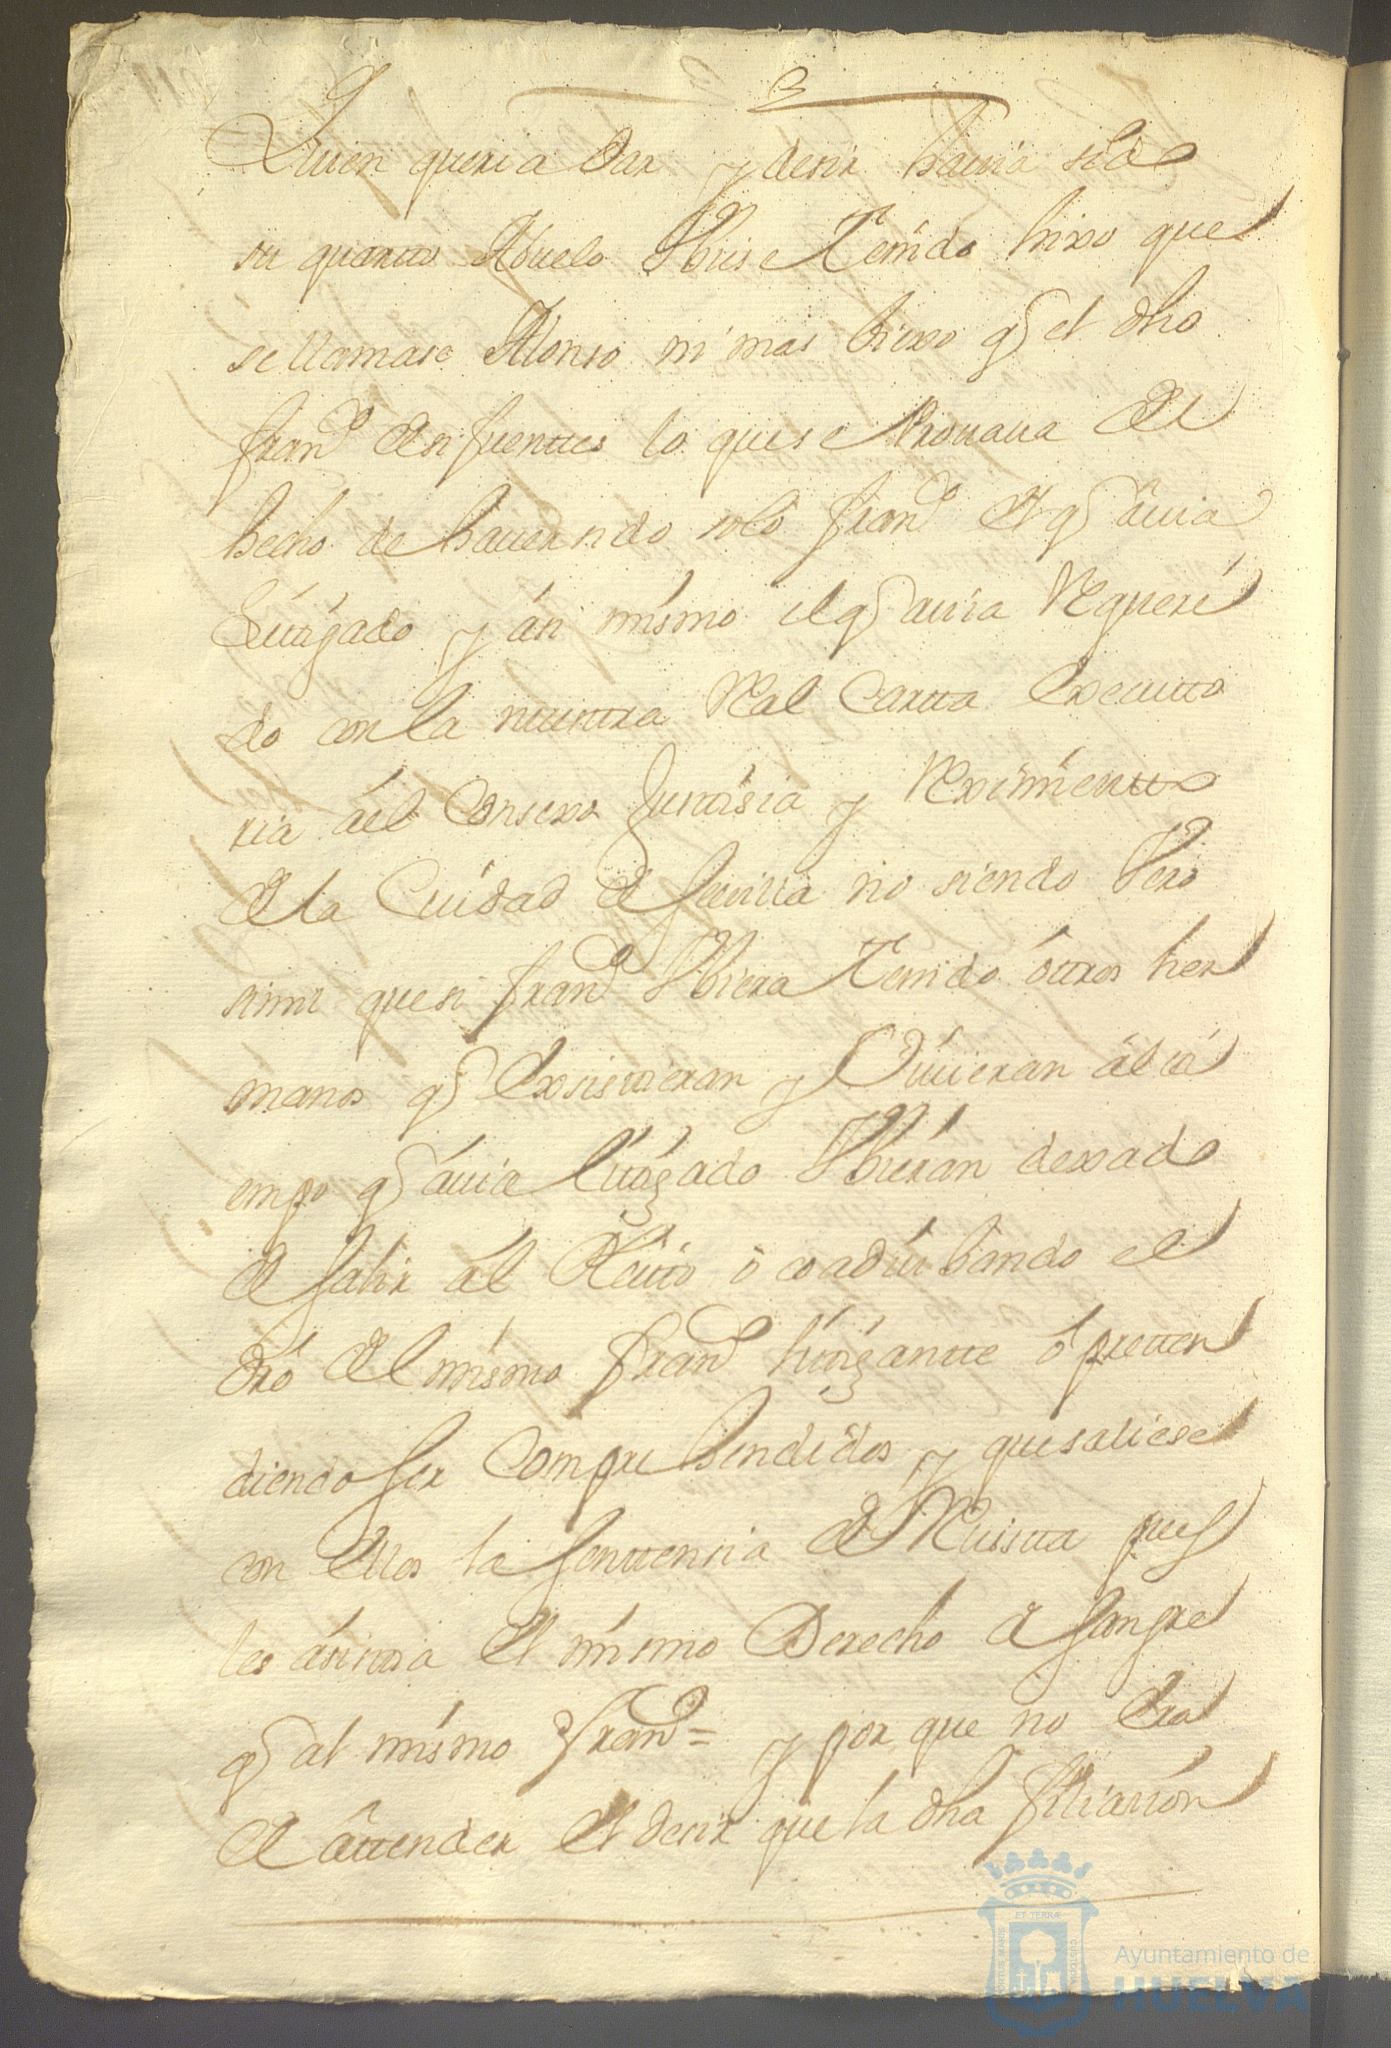 Quien queria dar y desir havia sido
su quarto Abuelo Vbiese Tenido hixo que
se llamase Alonso ni mas hixo q̃ el dho
fran.co de fuenttes lo que se Provava del
hecho de haver sido solo fran.co el q̃ avia
Litigado y asi mismo el q̃ avia Requeri
do con la nuestra Real Cartta Executto
ria ael Consexo Justisia y Reximientto
de la Ciudad de Sevilla no siendo Vero
simil que si fran.co Vbiera Tenido ottros her
manos q̃ Existieran y Vivieran al ti
empo q̃ avia litigado Vbieran dexado
de salir al Pleitto o coadiubando el
dro del mismo fran.co litigantte o pretten
diendo ser Comprehendidos y que saliese
con ellos la Senttensia de Revistta pues
les asistia el mismo Derecho de sangre
q̃ al mismo fran.co = y por que no Era
de attender el desir que la dha filiasion
Ayuntamiento de
HUELVA